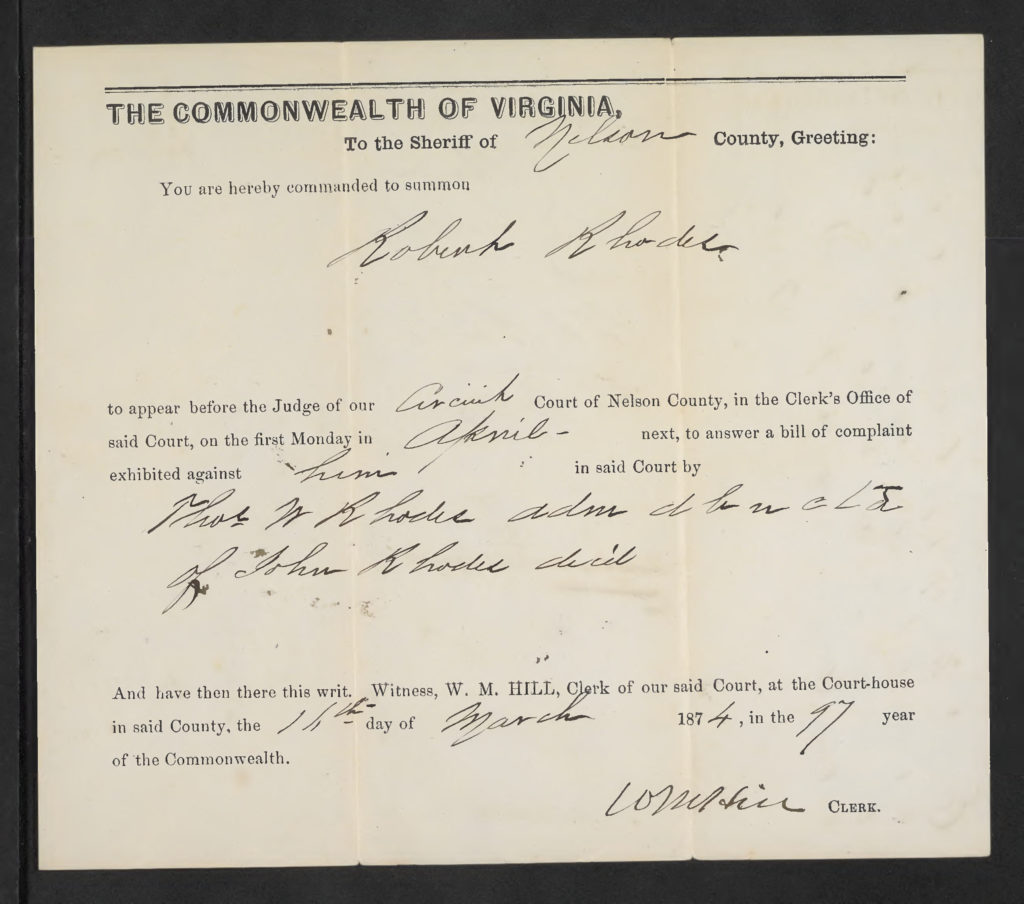 THE COMMONWEALTH OF VIRGINIA,
To the Sheriff of Nelson County, Greeting:
You are hereby commanded to summon
Robert Rhodes
to appear before the Judge of our Circuit Court of Nelson County, in the Clerk's Office of
said Court, on the first Monday in April - next, to answer a bill of complaint
exhibited against him in said Court by
Thos W Rhodes adm d b n c t a
of John Rhodes dec'd
And have then there this writ. Witness, W. M. HILL, Clerk of our said Court, at the Court-house
in said County, the day of March 1874, in the 97 year
of the Commonwealth.
W M Hill CLERK.